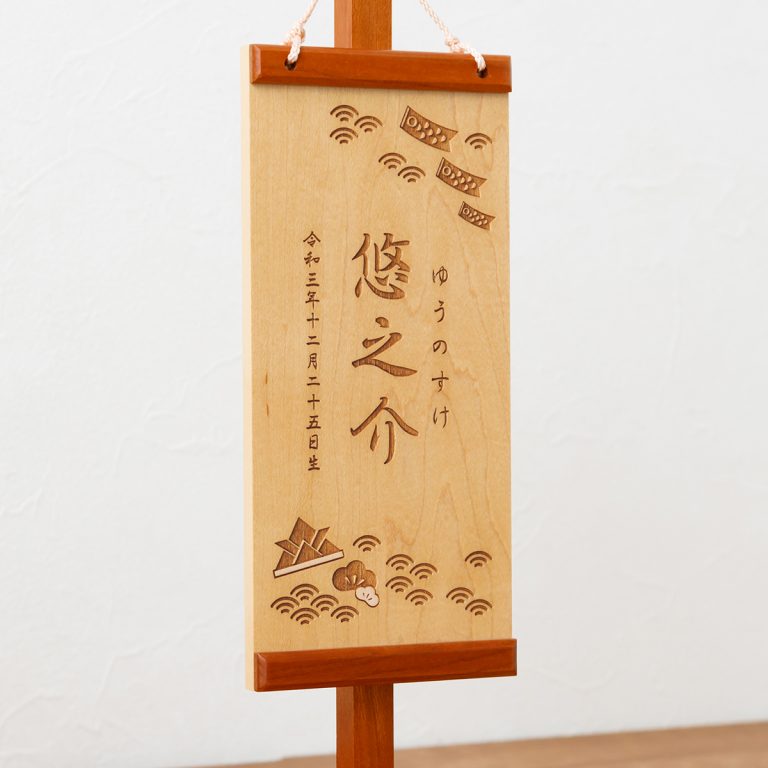 ゆうのすけ
悠之介
令和三年十二月二十五日生